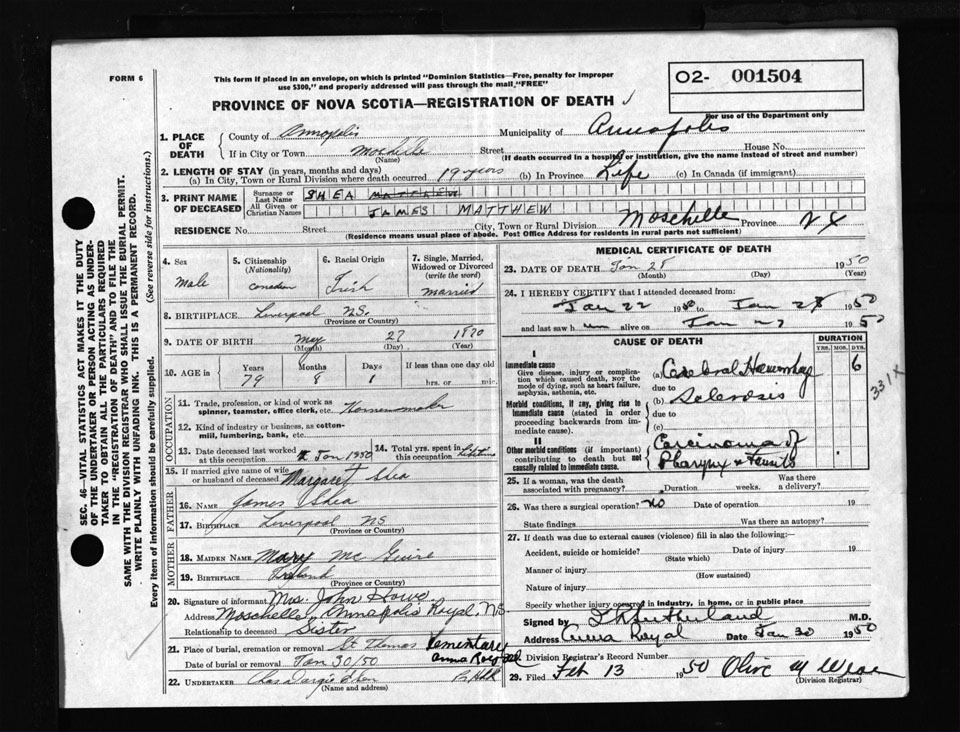 FORM 6
This form if placed in an envelope, on which is printed "Dominion Statistics—Free, penalty for improper
use $300," and properly addressed will pass through the mail, "FREE"
O2- 001504
For use of the Department only
PROVINCE OF NOVA SCOTIA—REGISTRATION OF DEATH
1. PLACE OF DEATH
County of Annapolis Municipality of Annapolis
If in City or Town Moschelle Street House No.
(Name) (If death occurred in a hospital or institution, give the name instead of street and number)
2. LENGTH OF STAY (in years, months and days)
(a) In City, Town or Rural Division where death occurred 19 years (b) In Province Life (c) In Canada (if immigrant)
3. PRINT NAME OF DECEASED
Surname or Last Name SHEA MATTHEW
All Given or Christian Names JAMES MATTHEW
RESIDENCE No. Street City, Town or Rural Division Moschelle Province NS
(Residence means usual place of abode. Post Office Address for residents in rural parts not sufficient)
4. Sex male
5. Citizenship (Nationality)
6. Racial Origin Irish
7. Single, Married, Widowed or Divorced (write the word) married
8. BIRTHPLACE Liverpool NS.
(Province or Country)
9. DATE OF BIRTH May 27 1870
(Month) (Day) (Year)
10. AGE in Years Months Days If less than one day old
79 8 1 hrs. or min.
OCCUPATION
11. Trade, profession, or kind of work as spinner, teamster, office clerk, etc.
12. Kind of industry or business, as cotton-mill, lumbering, bank, etc.
13. Date deceased last worked at this occupation Jan 1950
14. Total yrs. spent in this occupation lifetime
15. If married give name of wife or husband of deceased Margaret Shea
FATHER
16. NAME James Shea
17. BIRTHPLACE Liverpool NS
(Province or Country)
MOTHER
18. MAIDEN NAME Mary McGuire
19. BIRTHPLACE Ireland
(Province or Country)
20. Signature of informant Mrs. John Howe
Address Moschelle, Annapolis Royal, NS
Relationship to deceased Sister
21. Place of burial, cremation or removal St Thomas Cementary
Anna Royal
Date of burial or removal Jan 30/50
22. UNDERTAKER
(Name and address)
MEDICAL CERTIFICATE OF DEATH
23. DATE OF DEATH Jan 28 1950
(Month) (Day) (Year)
24. I HEREBY CERTIFY that I attended deceased from:
Jan 22 1950 to Jan 28 1950
and last saw h im alive on Jan 27 1950
CAUSE OF DEATH DURATION
YRS. MOS. DYS.
I
Immediate cause
Give disease, injury or complication which caused death, NOT the mode of dying, such as heart failure, asphyxia, asthenia, etc.
(a) Cerebral Hemorrhage 6
due to
331X
Morbid conditions, if any, giving rise to immediate cause (stated in order proceeding backwards from immediate cause).
(b) Sclerosis
due to
(c)
II
Other morbid conditions (if important) contributing to death but not causally related to immediate cause.
Carcinoma of
Pharynx &
25. If a woman, was the death associated with pregnancy? Duration weeks. Was there a delivery?
26. Was there a surgical operation? no Date of operation 19
State findings Was there an autopsy?
27. If death was due to external causes (violence) fill in also the following:—
Accident, suicide or homicide? Date of injury 19
(State which)
Manner of injury
(How sustained)
Nature of injury
Specify whether injury occurred in industry, in home, or in public place
Signed by Sutherland M.D.
Address Anna Royal Date Jan 30 1950
28. Division Registrar's Record Number
29. Filed Feb 13 1950 Olive M
(Division Registrar)
SEC. 46—VITAL STATISTICS ACT MAKES IT THE DUTY
OF THE UNDERTAKER OR PERSON ACTING AS UNDER-
TAKER TO OBTAIN ALL THE PARTICULARS REQUIRED
IN THE "REGISTRATION OF DEATH" AND TO FILE THE
SAME WITH THE DIVISION REGISTRAR WHO SHALL ISSUE THE BURIAL PERMIT.
WRITE PLAINLY WITH UNFADING INK. THIS IS A PERMANENT RECORD.
Every item of information should be carefully supplied. (See reverse side for instructions.)